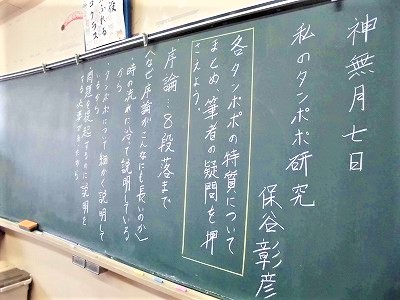 神無月七日
私のタンポポ研究
保谷彰彦
各タンポポの特質について
まとめ、筆者の疑問を押
さえよう。
序論…8段落まで
〈なぜ序論がこんなにも長いのか〉
・時の流れに沿って説明している
から
・タンポポについて細かく説明して
いるから